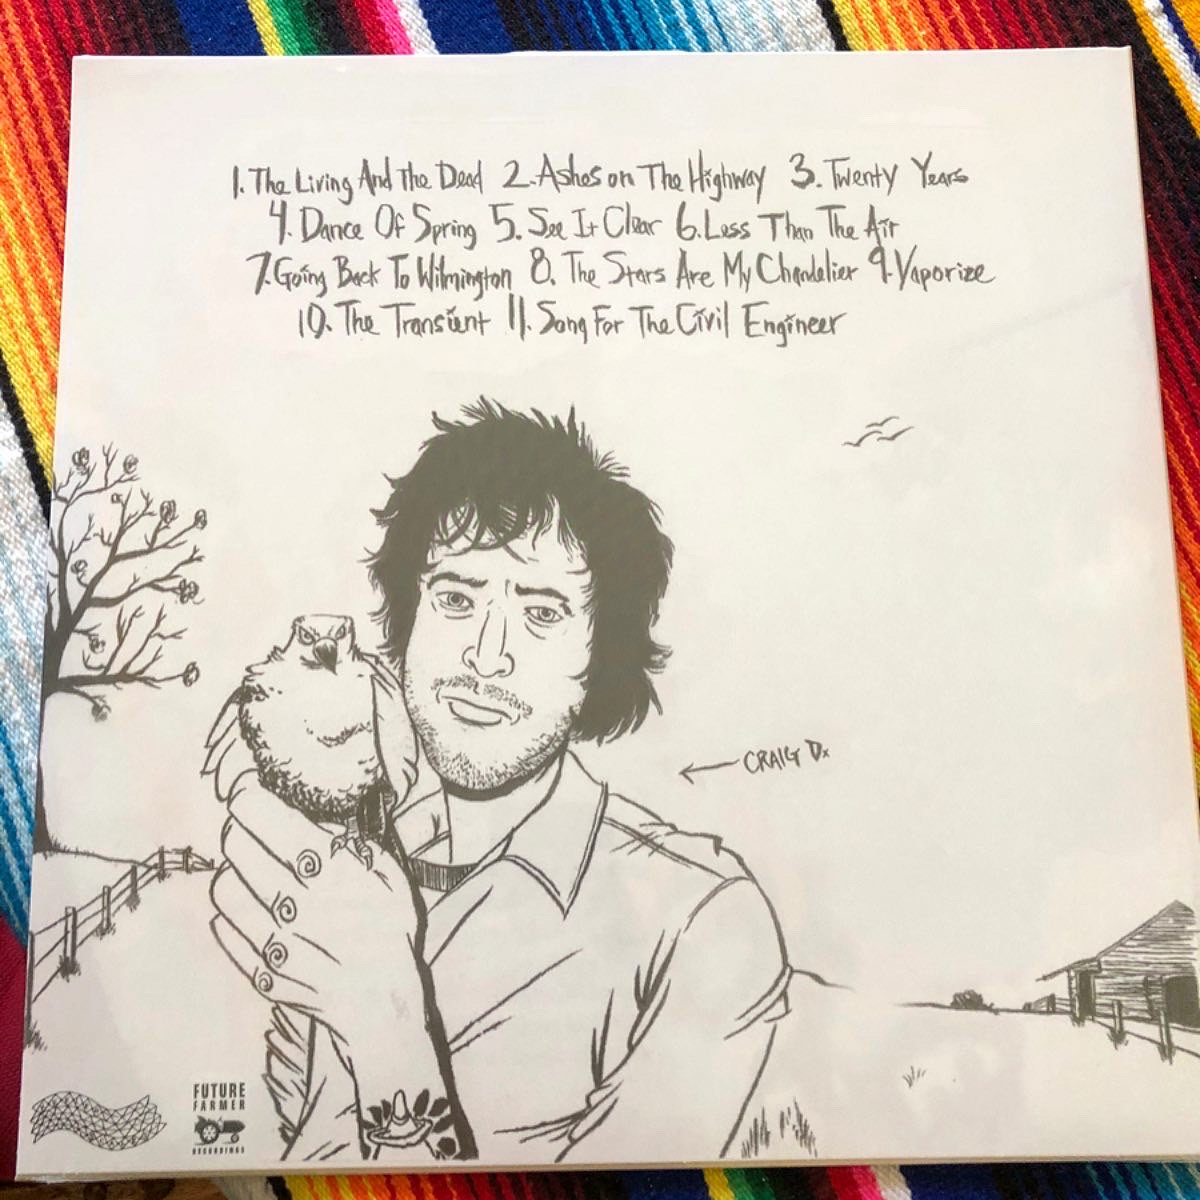 1. The Living And The Dead 2. Ashes on The Highway 3. Twenty Years
4. Dance Of Spring 5. See It Clear 6. Less Than The Air
7. Going Back To Wilmington 8. The Stars Are My Chandelier 9. Vaporize
10. The Transient 11. Song For The Civil Engineer
← CRAIG Dx
FUTURE
FARMER
RECORDINGS